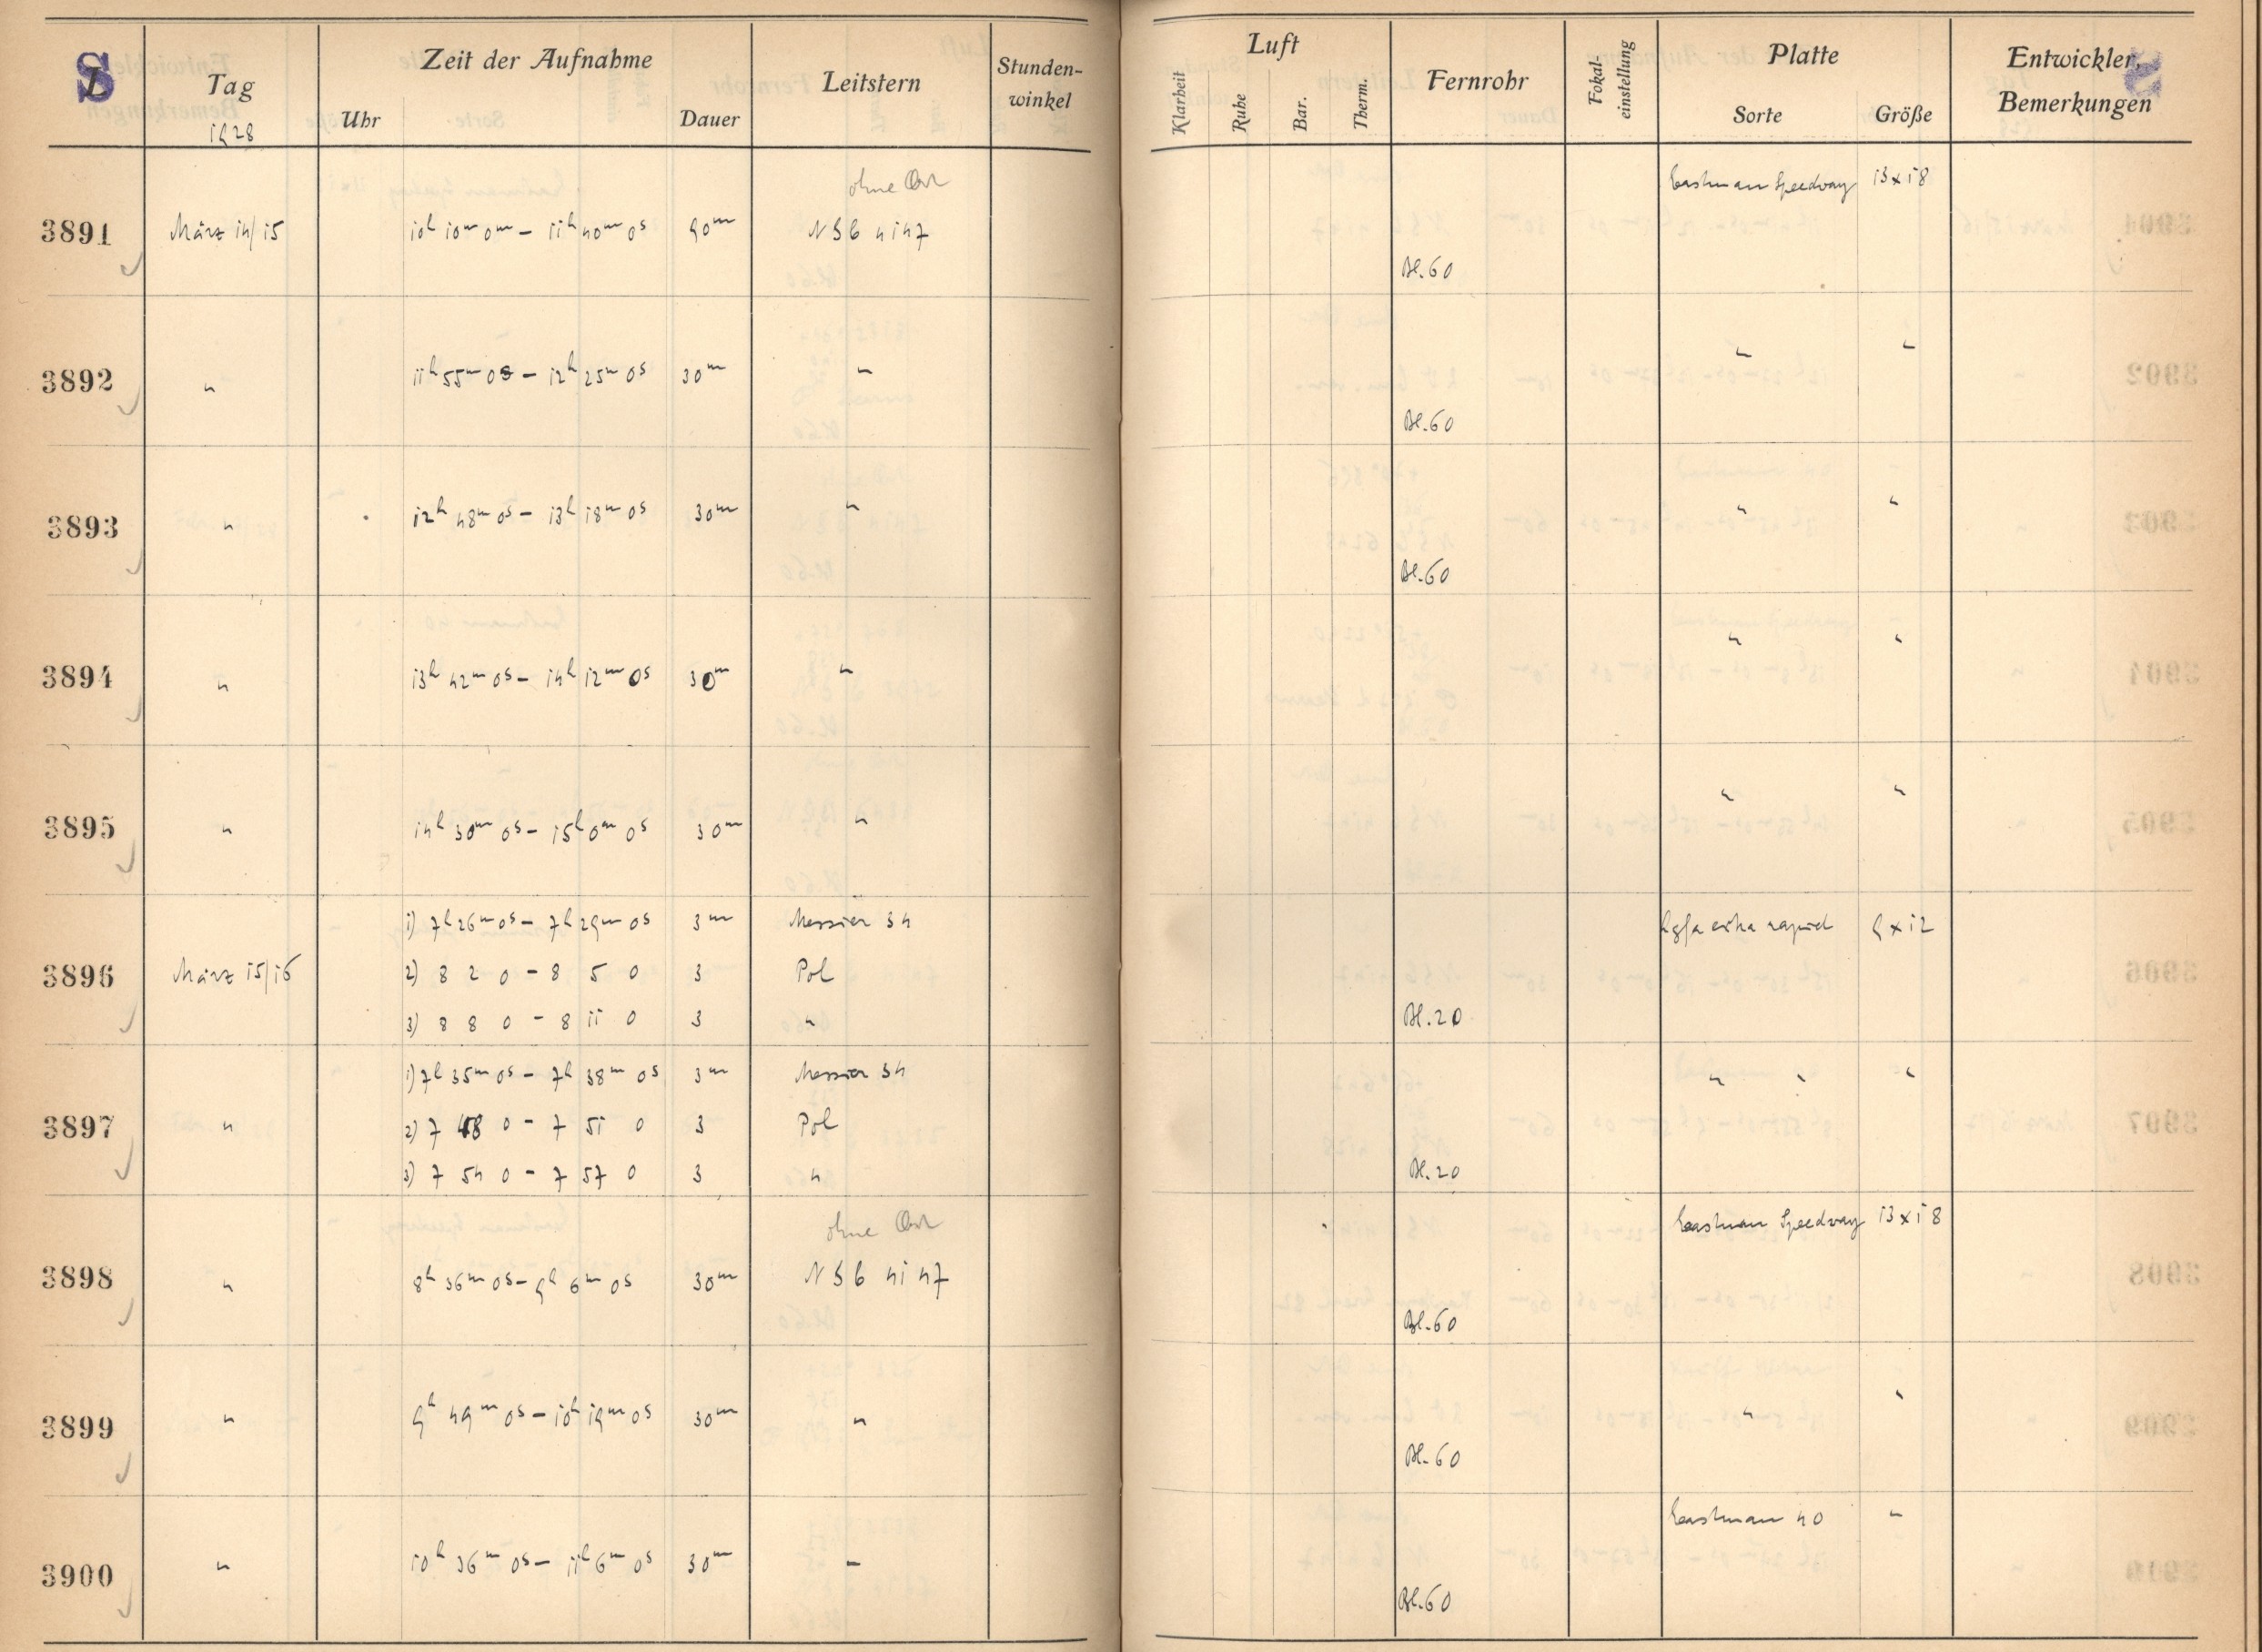 S
Tag
1928
Zeit der Aufnahme
Uhr
Dauer
Leitstern
Stunden-
winkel
Luft
Klarheit
Ruhe
Bar.
Therm.
Fernrohr
Fokal-
einstellung
Platte
Sorte
Größe
Entwickler,
Bemerkungen
ohne Ort Eastman Speedway 13x18
3891 März 14/15 10h 10m 0m – 11h 40m 0s 90m NS6 4147
Bl. 60
3892 " 11h 55m 0s – 12h 25m 0s 30m " " "
Bl. 60
3893 " 12h 48m 0s – 13h 18m 0s 30m " " "
Bl. 60
3894 " 13h 42m 0s – 14h 12m 0s 30m " " "
3895 " 14h 30m 0s – 15h 0m 0s 30m " " "
1) 7h 26m 0s – 7h 29m 0s 3m Messier 34 Agfa extra rapid 9x12
3896 März 15/16 2) 8 2 0 – 8 5 0 3 Pol
3) 8 8 0 – 8 11 0 3 " Bl. 20
1) 7h 35m 0s – 7h 38m 0s 3m Messier 34 " " "
3897 " 2) 7 48 0 – 7 51 0 3 Pol
3) 7 54 0 – 7 57 0 3 " Bl. 20
ohne Ort Eastman Speedway 13x18
3898 " 8h 36m 0s – 9h 6m 0s 30m NS6 4147
Bl. 60
3899 " 9h 49m 0s – 10h 19m 0s 30m " " "
Bl. 60
Eastman 40 "
3900 " 10h 36m 0s – 11h 6m 0s 30m "
Bl. 60